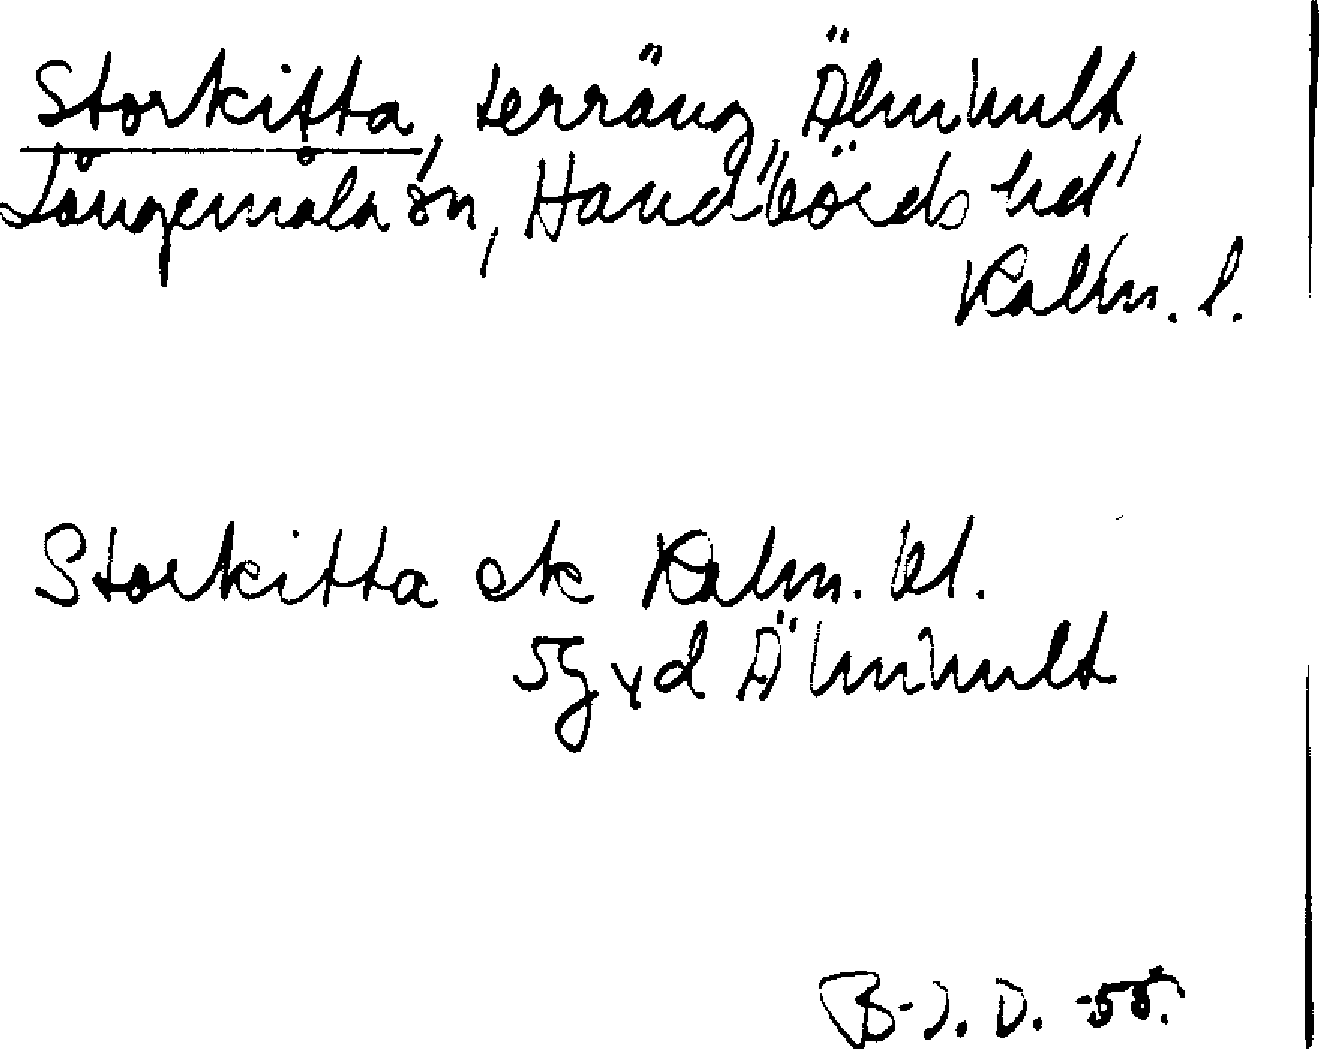 Storkitta, terräng, Älmhult,
Långemåla sn, Handbörds hd
Kalm. l.
Storkitta ek Kalm. bl.
5g yd Älmhult
B-J. D. -55.